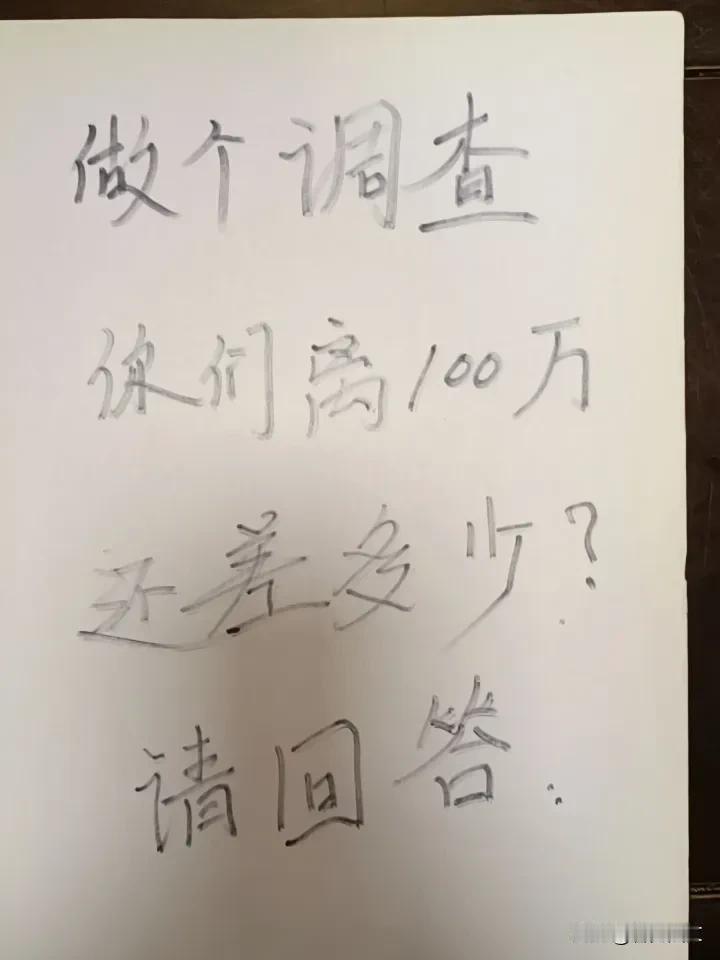 做个调查
你们离100万
还差多少?
请回答: